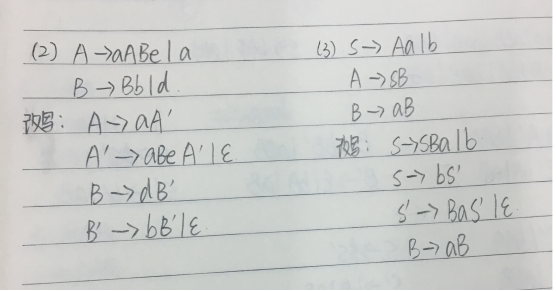 (2) A→aABe|a
B→Bb|d.
改写: A→aA'
A'→aBeA'|ε
B→dB'
B'→bB'|ε
(3) S→Aa|b
A→SB
B→aB
改写: S→SBa|b
S→bS'
S'→BaS'|ε
B→aB